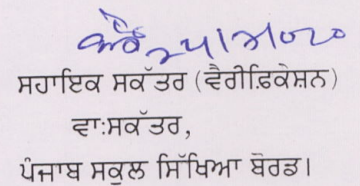 ਸਹਾਇਕ ਸਕੱਤਰ (ਵੈਰੀਫ਼ਿਕੇਸ਼ਨ)
ਵਾਃਸਕੱਤਰ,
ਪੰਜਾਬ ਸਕੂਲ ਸਿੱਖਿਆ ਬੋਰਡ।